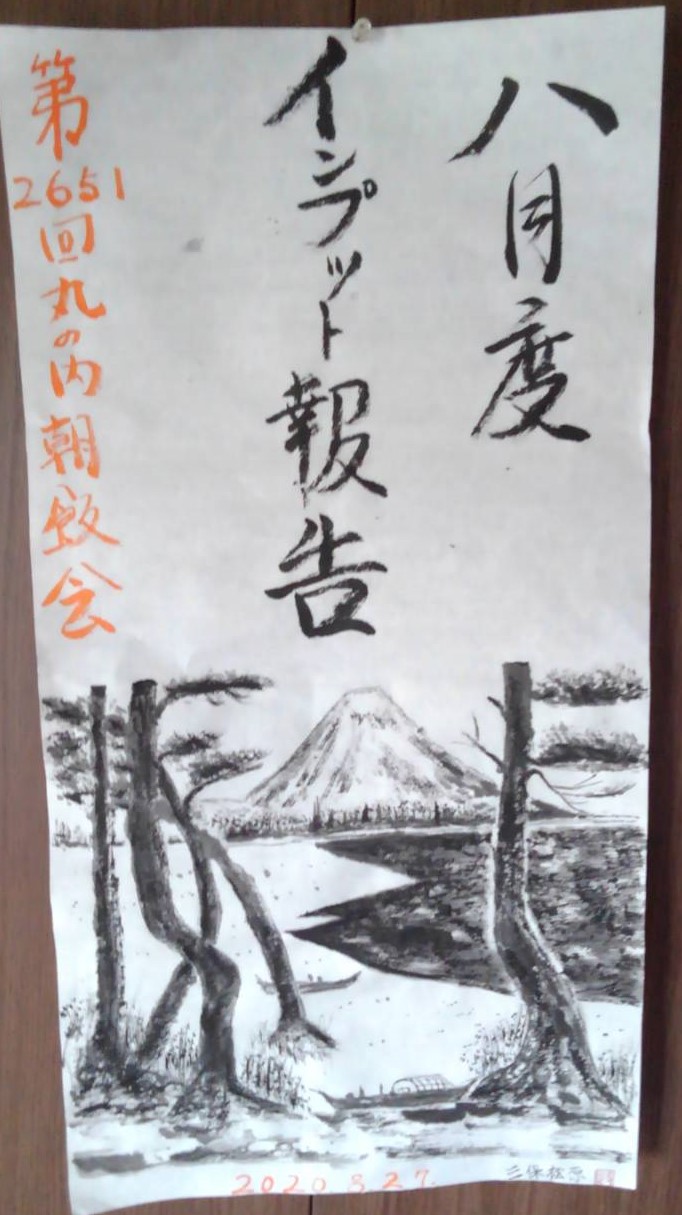 八月度
インプット報告
第2651回丸の内朝飯会
三保松原
2020.8.27.